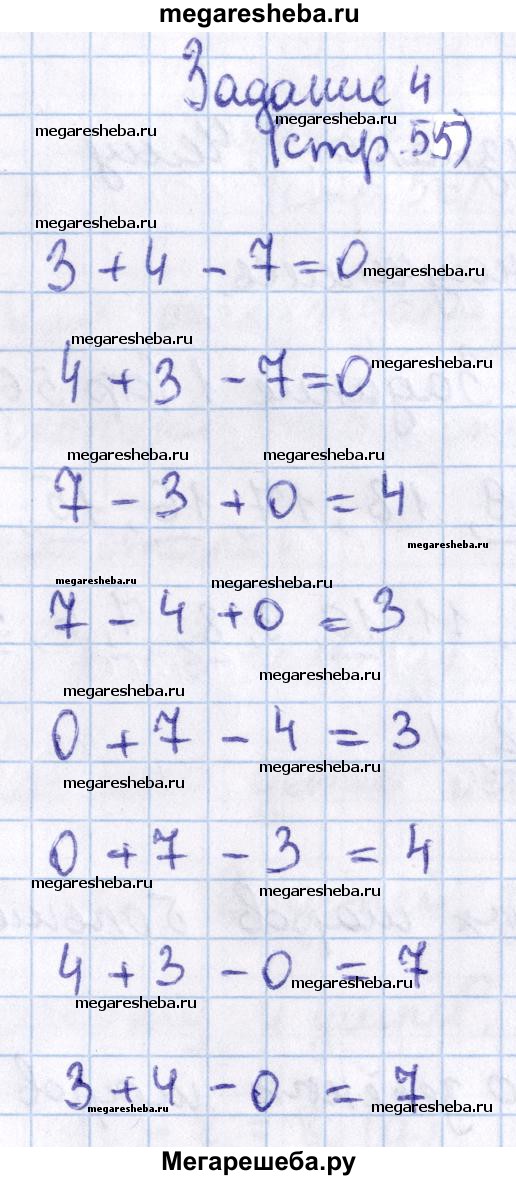 megaresheba.ru
Задание 4
megaresheba.ru megaresheba.ru
(стр. 55)
megaresheba.ru
3 + 4 - 7 = 0 megaresheba.ru
megaresheba.ru
4 + 3 - 7 = 0 megaresheba.ru
megaresheba.ru megaresheba.ru
7 - 3 + 0 = 4
megaresheba.ru
megaresheba.ru megaresheba.ru
7 - 4 + 0 = 3
megaresheba.ru
megaresheba.ru
0 + 7 - 4 = 3
megaresheba.ru
megaresheba.ru
0 + 7 - 3 = 4
megaresheba.ru
megaresheba.ru
4 + 3 - 0 = 7
megaresheba.ru
megaresheba.ru
3 + 4 - 0 = 7
megaresheba.ru megaresheba.ru
Мегарешеба.ру